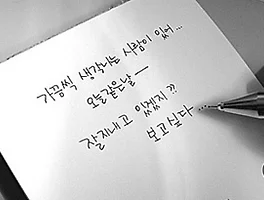 가끔씩 생각나는 사람이 있어...
오늘같은날 —
잘지내고 있겠지??
보고싶다...